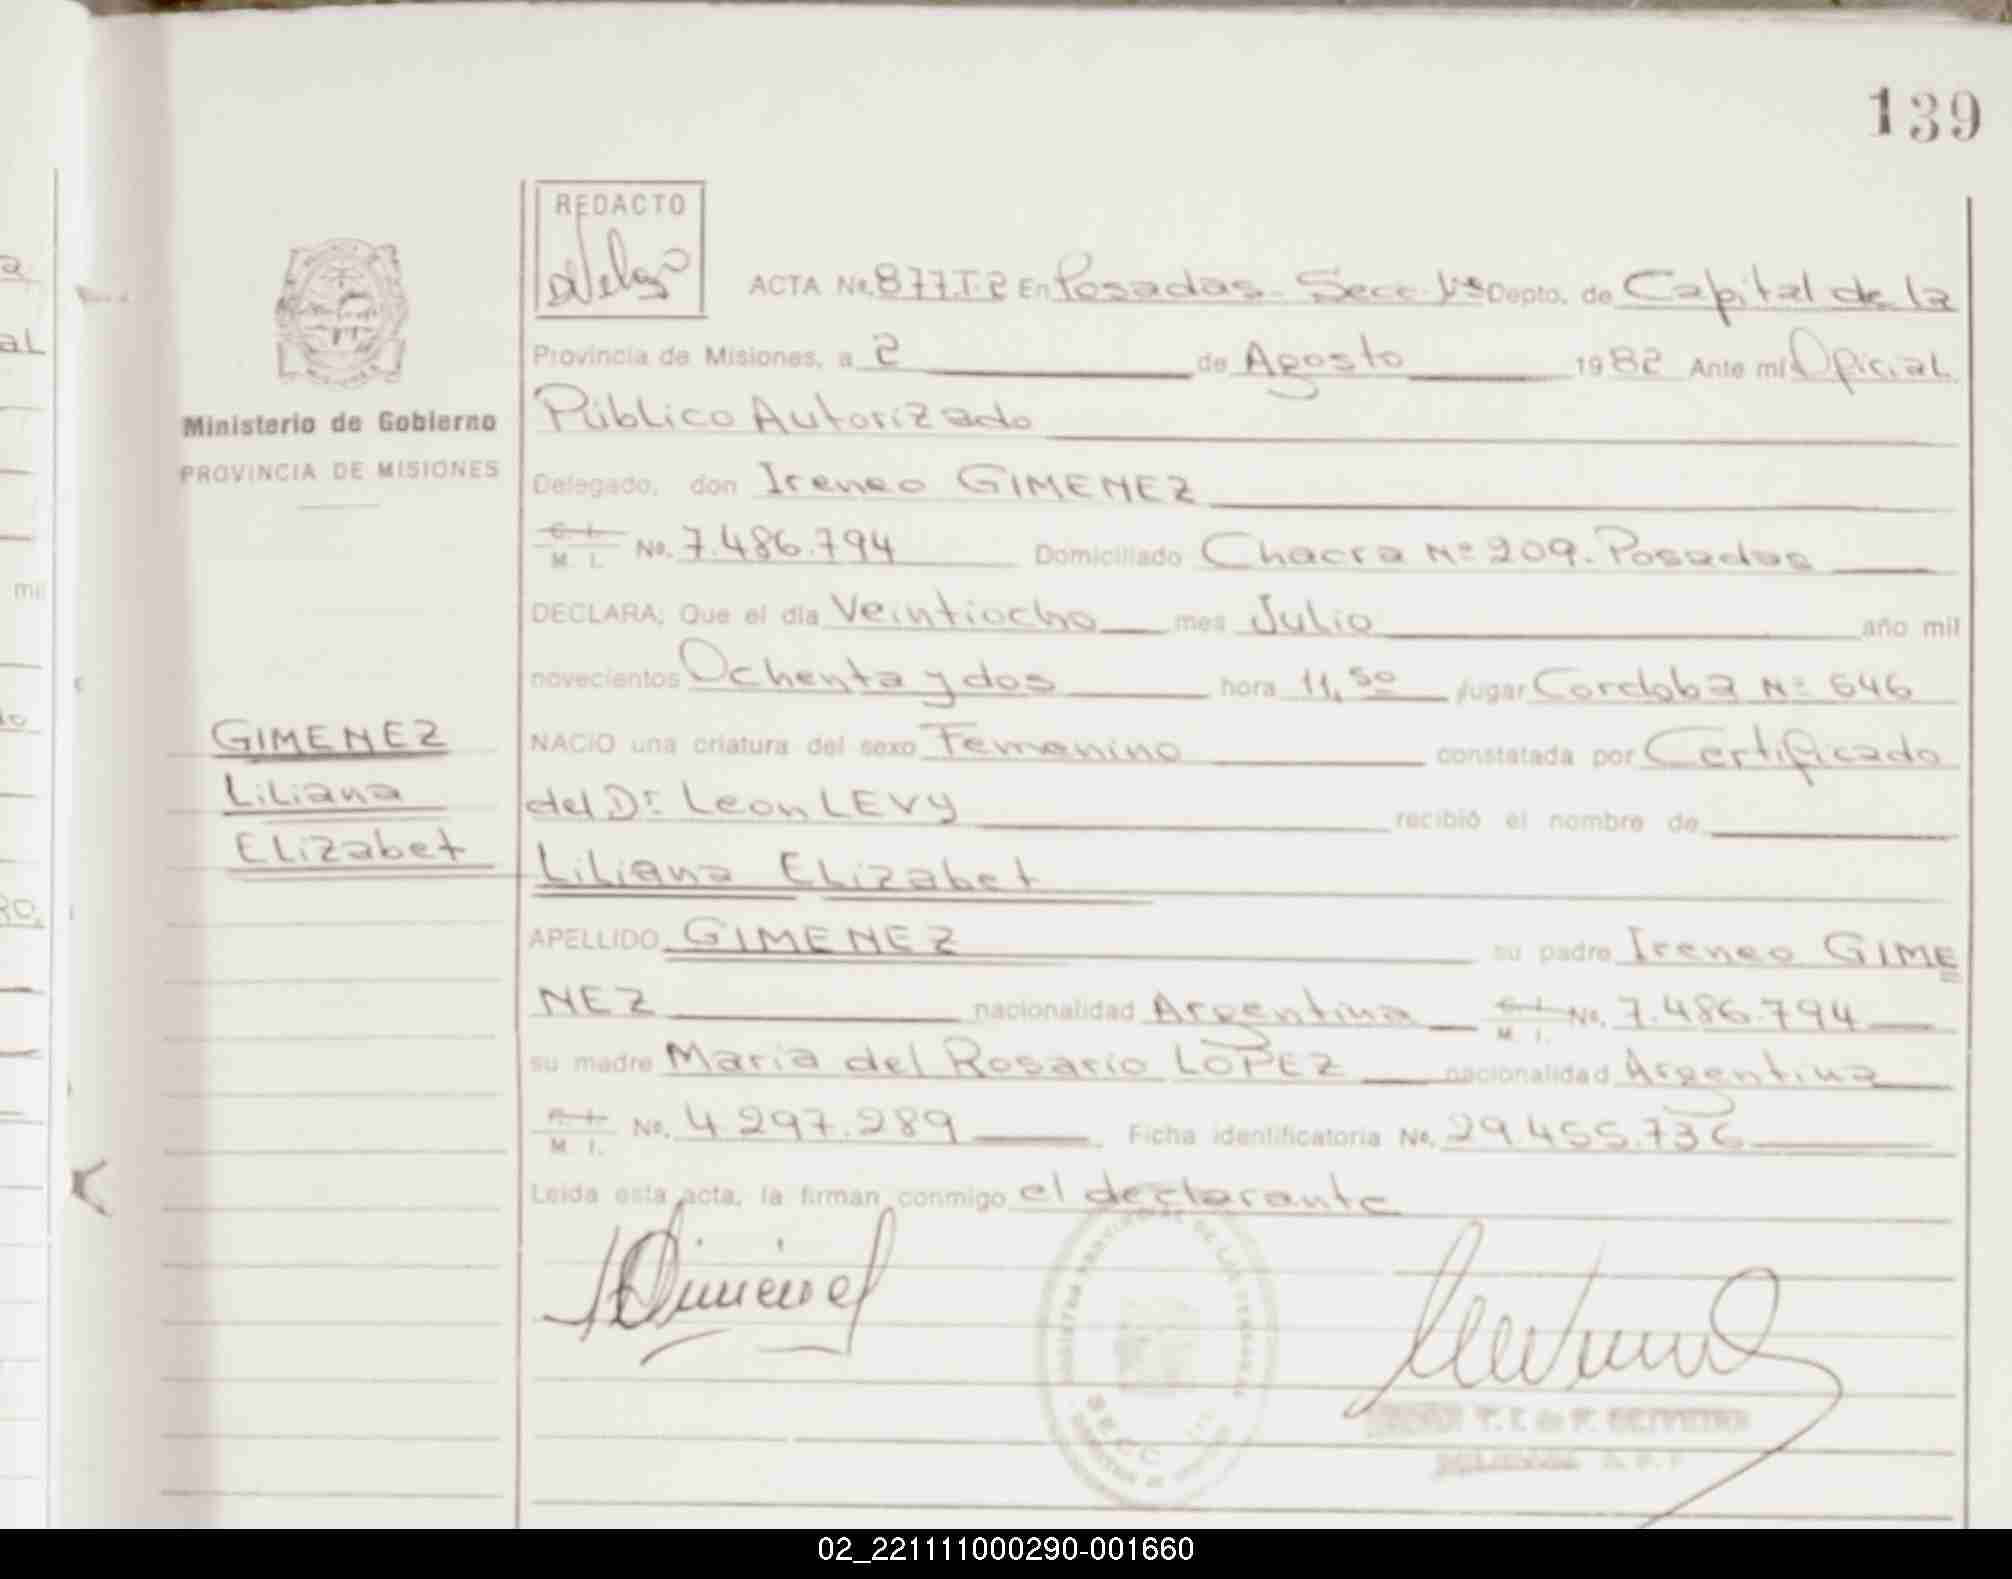 139
REDACTO
ACTA No. 877.T.2 En Posadas - Secc. 1ra Depto. de Capital de la
Provincia de Misiones, a 2 de Agosto 1982 Ante mí Oficial
Público Autorizado
Delegado, don Ireneo GIMENEZ
C. I.
M. I. No. 7.486.794 Domiciliado Chacra Nº 209. Posadas
DECLARA; Que el día Veintiocho mes Julio año mil
novecientos Ochenta y dos hora 11,50 lugar Cordoba Nº 646
NACIO una criatura del sexo Femenino constatada por Certificado
del Dr. Leon LEVY recibió el nombre de
Liliana Elizabet
APELLIDO GIMENEZ su padre Ireneo GIME
NEZ nacionalidad Argentina C. I.
M. I. No. 7.486.794
su madre Maria del Rosario LOPEZ nacionalidad Argentina
M. I. No. 4.297.289 Ficha identificatoria No. 29.455.736
Leída esta acta, la firman conmigo el declarante
Ministerio de Gobierno
PROVINCIA DE MISIONES
GIMENEZ
Liliana
Elizabet
SECC
mil
02_221111000290-001660